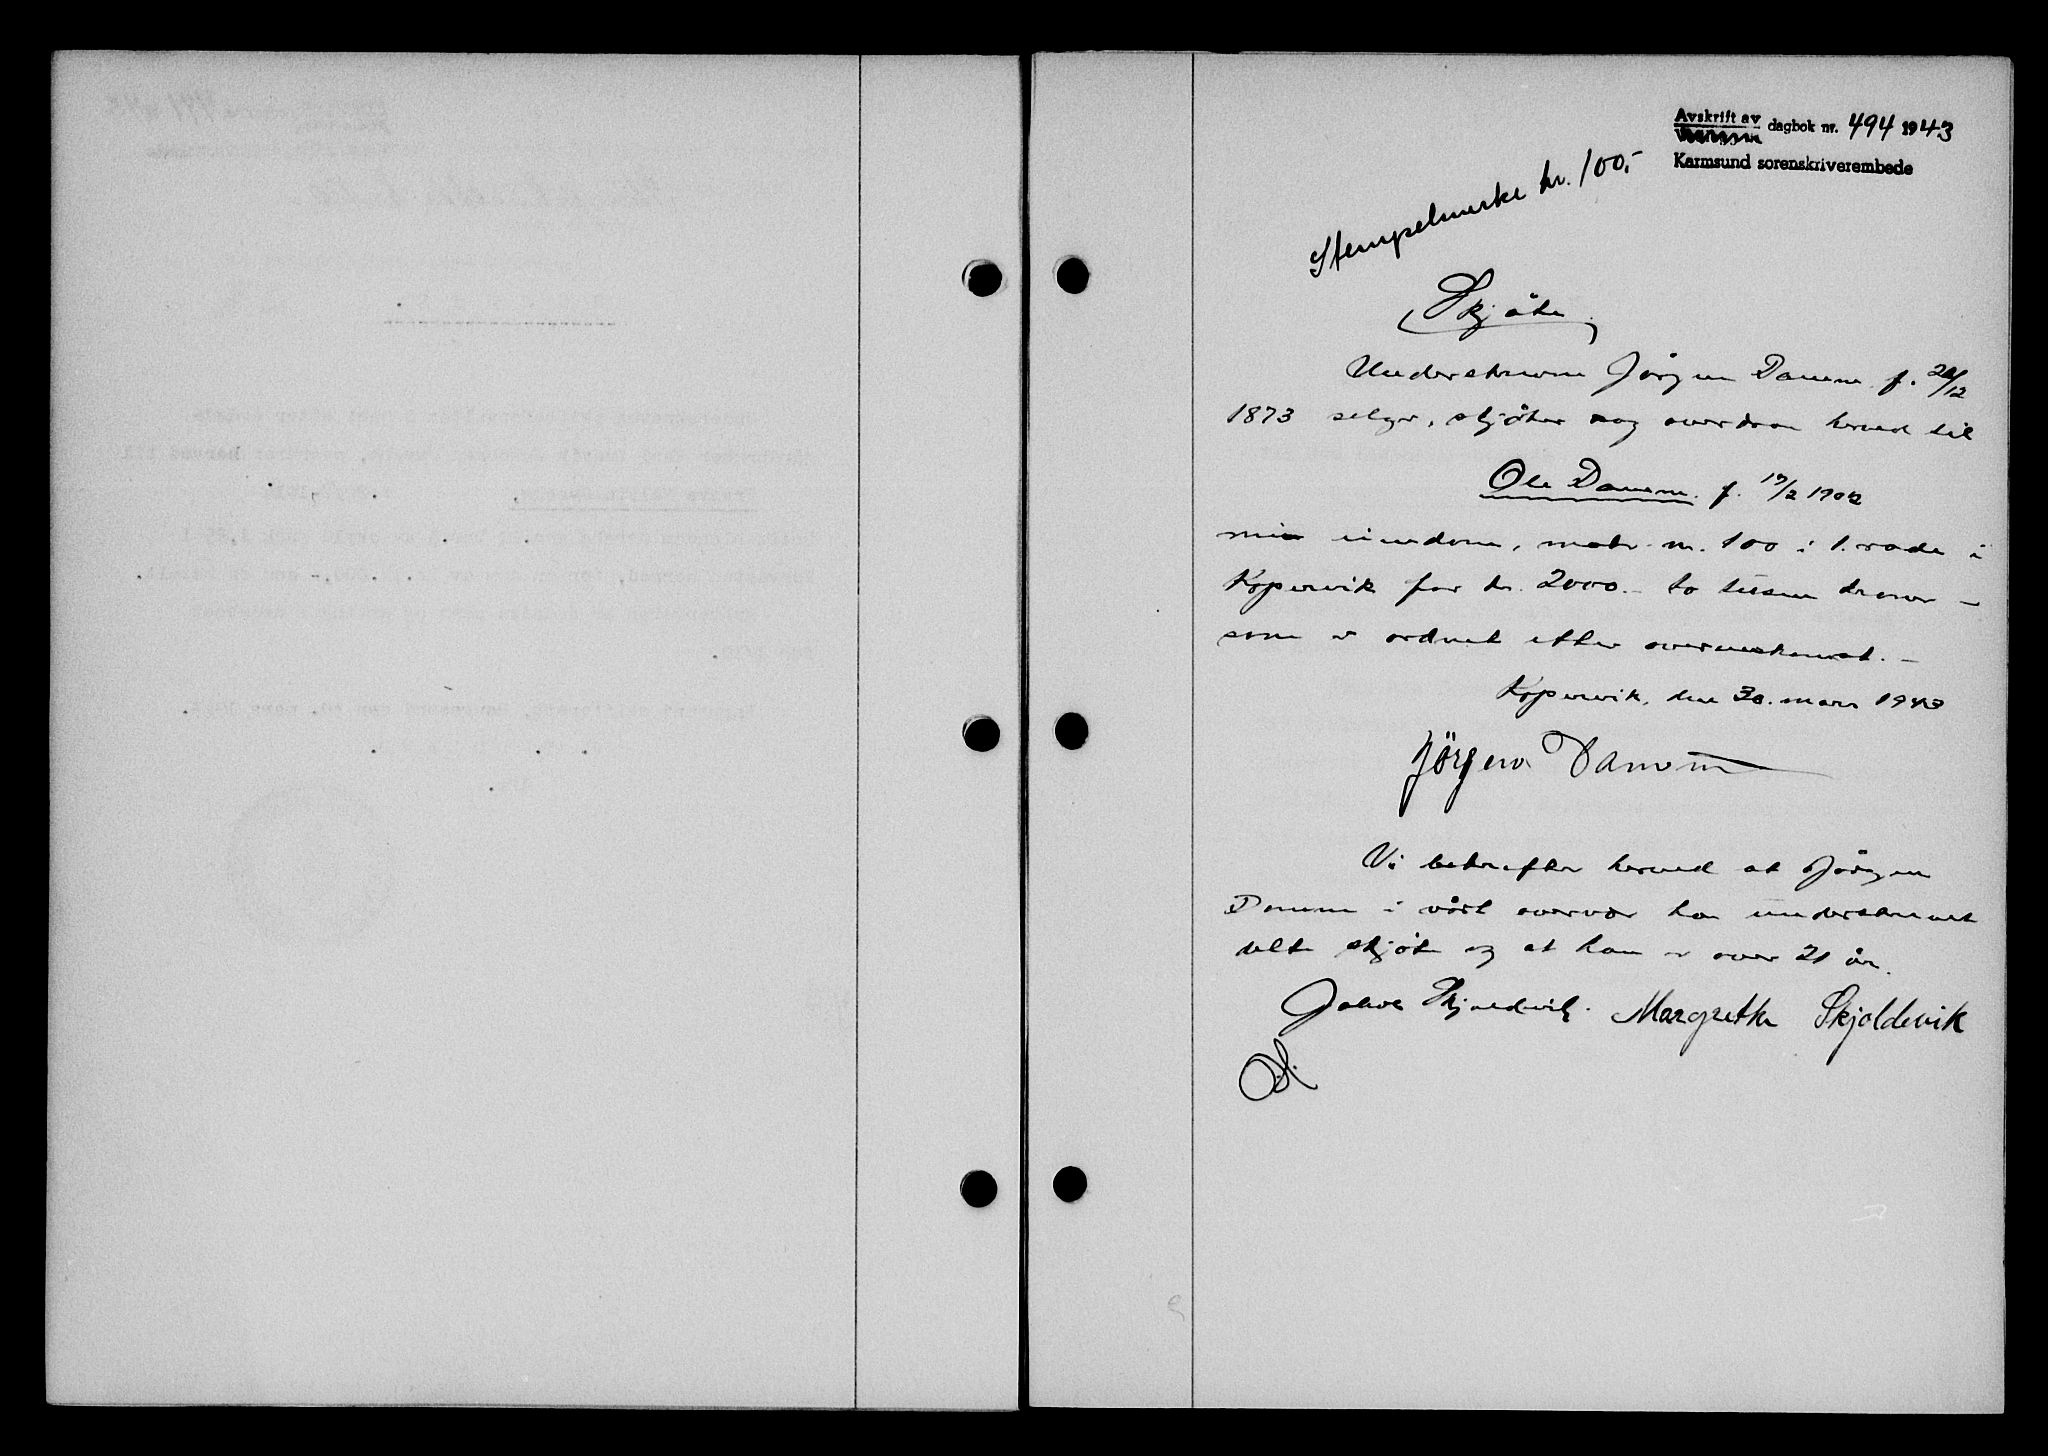 Avskrift av dagbok nr. 494 1943
Karmsund sorenskriverembede
Stempelmerke kr. 100,-
Skjöte.
Underskrevne Jörgen Damm f. /12
1873 selger, skjöter og overdrar herved til
Ole Damm. f. 17/2 1902
min eiendom, matr. nr. 100 i 1. rode i
Kopervik for kr. 2000.- to tusen kroner -
som er ordnet efter overenskomst. -
Kopervik, den 30. mars 1943
Jörgen Damm
Vi bekrefter herved at Jörgen
Damm i vårt overvær har underskrevet
dette skjöte og at han er over 21 år.
Jakob Skjoldevik. Margrethe Skjoldevik